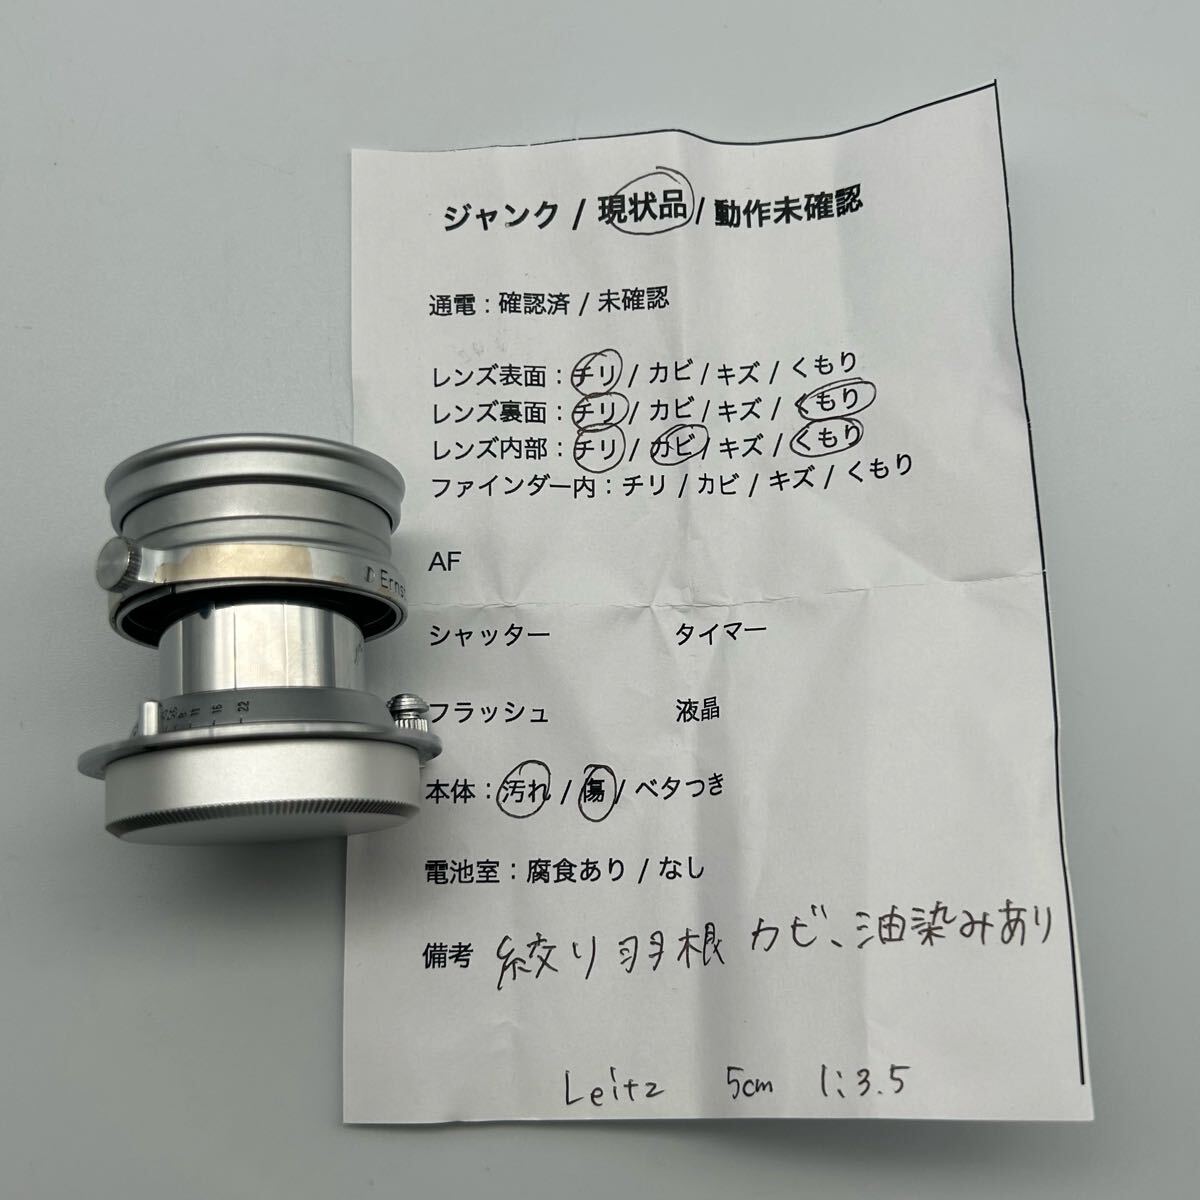 ジャンク / 現状品 / 動作未確認
通電 : 確認済 / 未確認
レンズ表面 : チリ / カビ / キズ / くもり
レンズ裏面 : チリ / カビ / キズ / くもり
レンズ内部 : チリ / カビ / キズ / くもり
ファインダー内 : チリ / カビ / キズ / くもり
AF
シャッター タイマー
フラッシュ 液晶
本体 : 汚れ / 傷 / ベタつき
電池室 : 腐食あり / なし
備考 絞り羽根 カビ、油染みあり
Leitz 5cm 1:3.5
Ernst
8 11 16 22